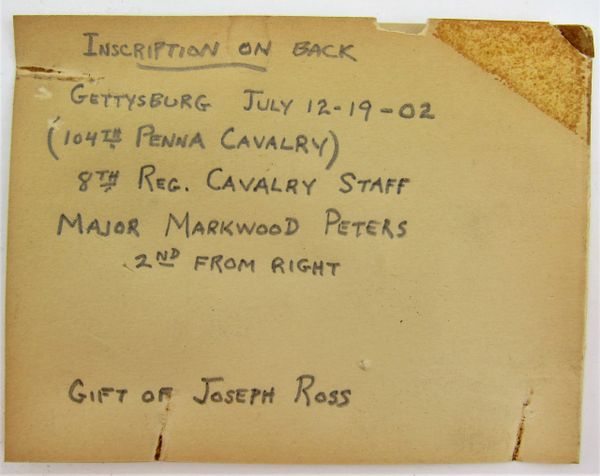 INSCRIPTION ON BACK
GETTYSBURG JULY 12-19-02
(104TH PENNA CAVALRY)
8TH REG. CAVALRY STAFF
MAJOR MARKWOOD PETERS
2ND FROM RIGHT
GIFT OF JOSEPH ROSS